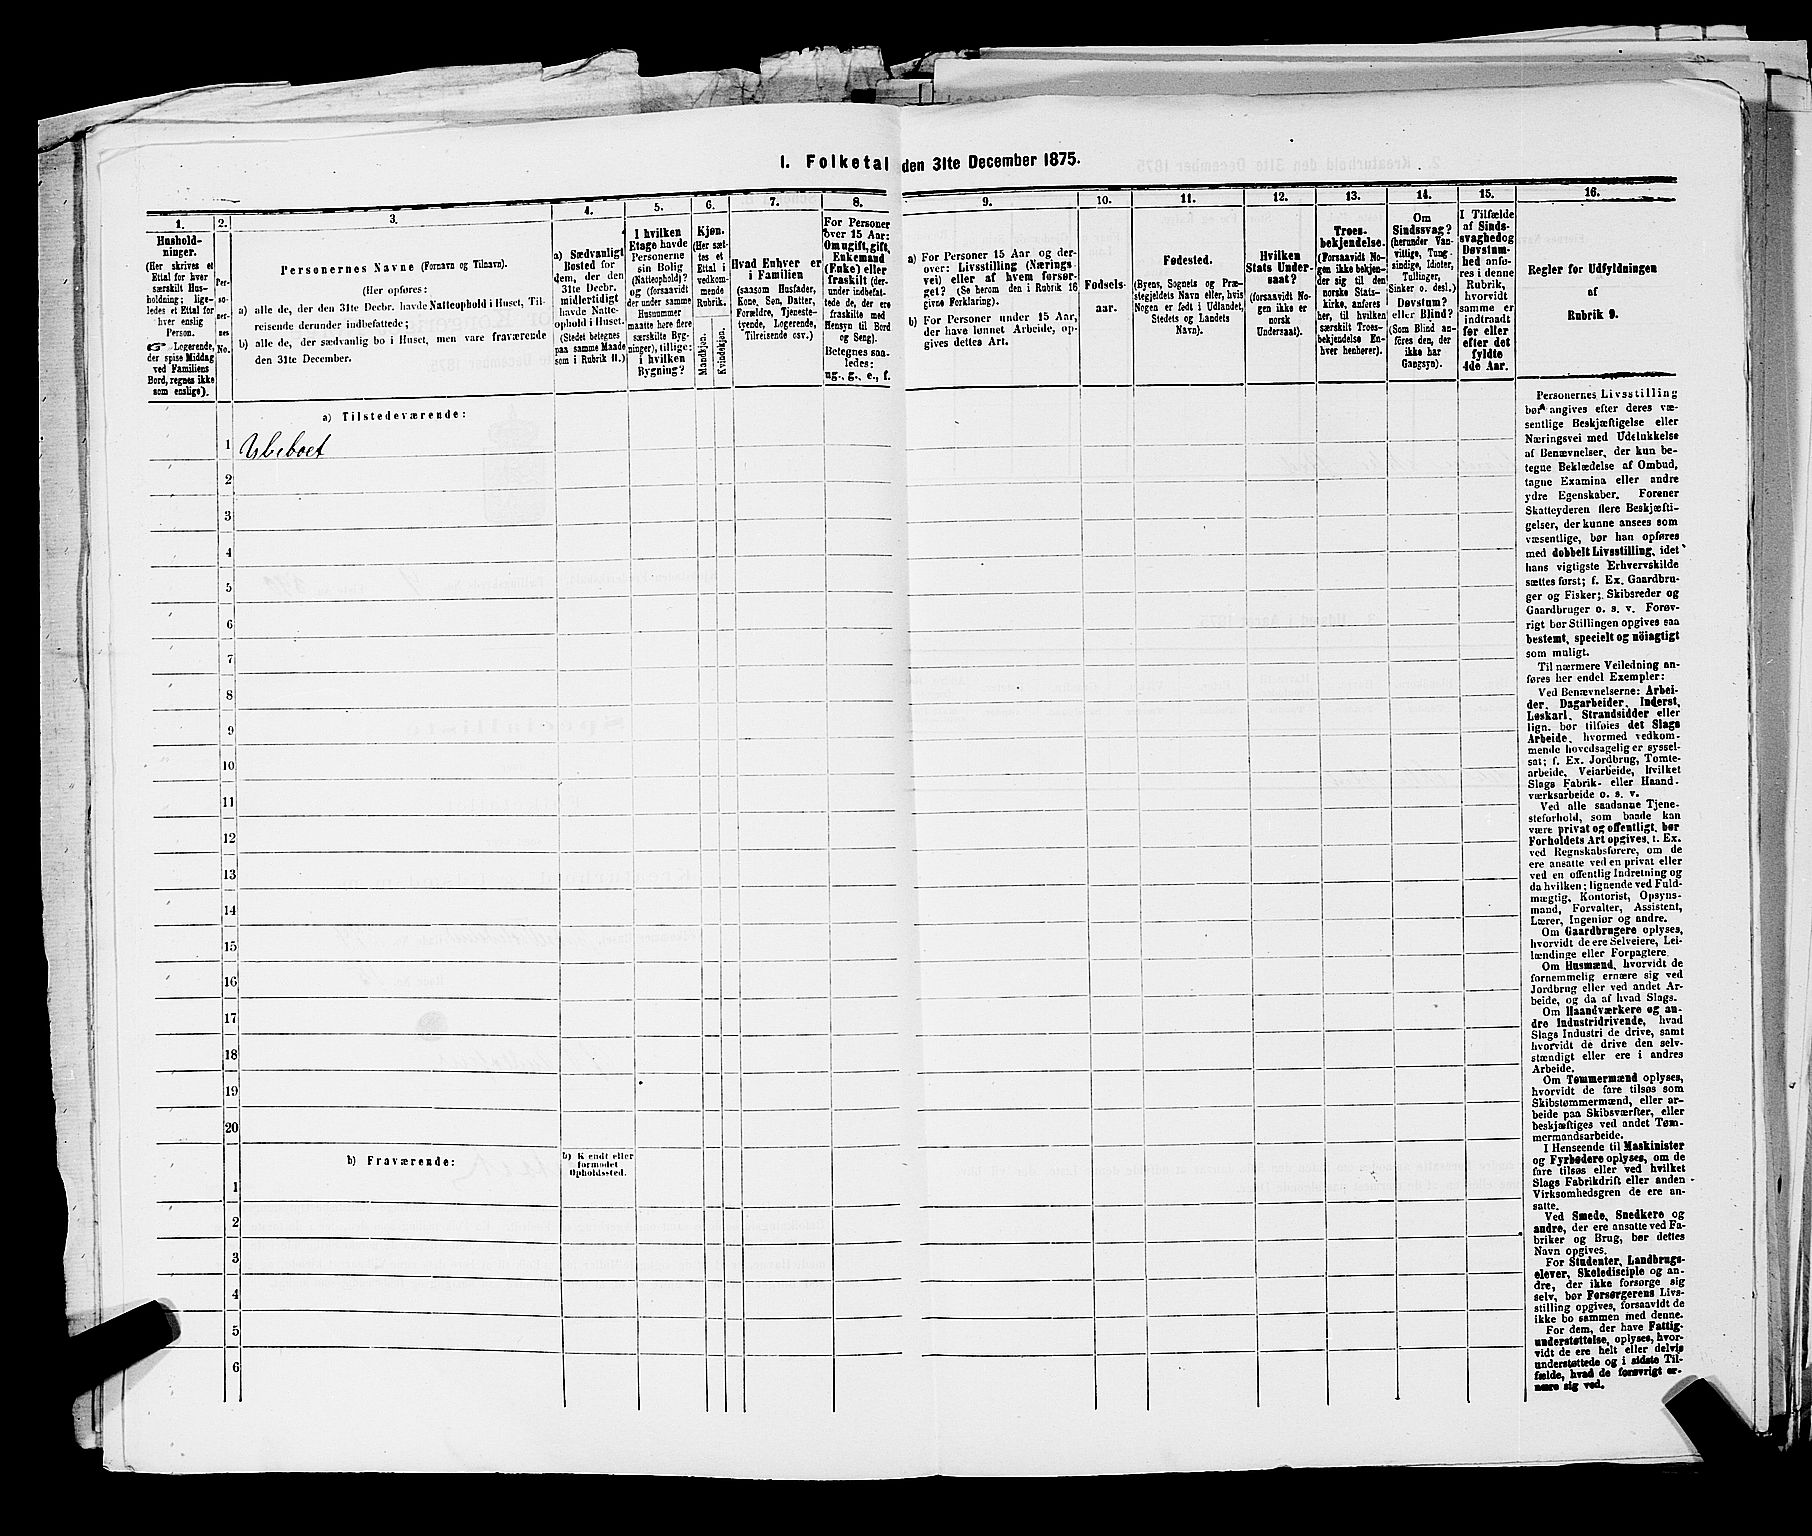 1. Folketal den 31te December 1875.
1.
Hushold-
ninger.
(Her skrives et
Ettal for hver
særskilt Hus-
holdning; lige-
ledes et Ettal for
hver enslig
Person.
☞ Logerende,
der spise Middag
ved Familiens
Bord, regnes ikke
som enslige).
2.
Per-
so-
ner-
nes
No.
3.
Personernes Navne (Fornavn og Tilnavn).
(Her opføres:
a) alle de, der den 31te Decbr. havde Natteophold i Huset, Til-
reisende derunder indbefattede;
b) alle de, der sædvanlig bo i Huset, men vare fraværende
den 31te December.
4.
a) Sædvanligt
Bosted for
dem, der den
31te Decbr.
midlertidigt
havde Natte-
ophold i Huset.
(Stedet betegnes
paa samme Maade
som i Rubrik 11.)
5.
I hvilken
Etage havde
Personerne
sin Bolig
(Natteophold)?
og (forsaavidt
der under samme
Husnummer
maatte høre flere
særskilte Byg-
ninger), tillige:
i hvilken
Bygning?
6.
Kjøn.
(Her sæt-
tes et
Ettal i
vedkom-
mende
Rubrik.
Mandkjøn.
Kvindekjøn.
7.
Hvad Enhver er
i Familien
(saasom Husfader,
Kone, Søn, Datter,
Forældre, Tjeneste-
tyende, Logerende,
Tilreisende osv.)
8.
For Personer
over 15 Aar:
Om ugift, gift,
Enkemand
(Enke) eller
fraskilt (der-
under indbefat-
tede de, der ere
fraskilte med
Hensyn til Bord
og Seng).
Betegnes saa-
ledes:
ug., g., e., f.
9.
a) For Personer 15 Aar og der-
over: Livsstilling (Nærings-
vei) eller af hvem forsør-
get? (Se herom den i Rubrik 16
givne Forklaring).
b) For Personer under 15 Aar,
der have lønnet Arbeide, op-
gives dettes Art.
10.
Fødsels-
aar.
11.
Fødested.
(Byens, Sognets og Præ-
stegjeldets Navn eller, hvis
Nogen er født i Udlandet,
Stedets og Landets
Navn).
12.
Hvilken
Stats Under-
saat?
(forsaavidt No-
gen ikke er
norsk
Undersaat).
13.
Troes-
bekjendelse.
(Forsaavidt No-
gen ikke bekjen-
der sig til den
norske Stats-
kirke, anføres
her, til hvilken
særskilt Troes-
bekjendelse En-
hver henhører).
14.
Om
Sindssvag?
(herunder Van-
vittige, Tung-
sindige, Idioter,
Tullinger,
Sinker o. desl.)
Døvstum?
eller Blind?
(Som Blind an-
føres den, der
ikke har
Gangsyn).
15.
I Tilfælde
af Sinds-
svaghed og
Døvstum-
hed anfø-
res i denne
Rubrik,
hvorvidt
samme er
indtraadt
før eller
efter det
fyldte
4de Aar.
16.
Regler for Udfyldningen
af
Rubrik 9.
a) Tilstedeværende:
1 Ubeboet
2
3
4
5
6
7
8
9
10
11
12
13
14
15
16
17
18
19
20
b) Fraværende:
b) Kjendt eller
formodet
Opholdssted.
1
2
3
4
5
6
Personernes Livsstilling
bør angives efter deres væ-
sentlige Beskjæftigelse eller
Næringsvei med Udelukkelse
af Benævnelser, der kun be-
tegne Beklædelse af Ombud,
tagne Examina eller andre
ydre Egenskaber. Forener
Skatteyderen flere Beskjæfti-
gelser, der kunne ansees som
væsentlige, bør han opføres
med dobbelt Livsstilling, idet
hans vigtigste Erhvervskilde
sættes først; f. Ex. Gaardbru-
ger og Fisker; Skibsreder og
Gaardbruger o. s. v. Forøv-
rigt bør Stillingen opgives saa
bestemt, specielt og nöiagtigt
som muligt.
Til nærmere Veiledning an-
føres her endel Exempler:
Ved Benævnelserne: Arbei-
der, Dagarbeider, Inderst,
Løskarl, Strandsidder eller
lign. bør tilføies det Slags
Arbeide, hvormed vedkom-
mende hovedsagelig er syssel-
sat; f. Ex. Jordbrug, Tomte-
arbeide, Veiarbeide, hvilket
Slags Fabrik- eller Haand-
værksarbeide o. s. v.
Ved alle saadanne Tjene-
steforhold, som baade kan
være privat og offentligt, bør
Forholdets Art opgives, t. Ex.
ved Regnskabsførere, om de
ere ansatte ved en privat eller
ved en offentlig Indretning og
da hvilken; lignende ved Fuld-
mægtig, Kontorist, Opsyns-
mand, Forvalter, Assistent,
Lærer, Ingeniør og andre.
Om Gaardbrugere oplyses,
hvorvidt de ere Selveiere, Lei-
lændinge eller Forpagtere.
Om Husmænd, hvorvidt de
fornemmelig ernære sig ved
Jordbrug eller ved andet Ar-
beide, og da af hvad Slags.
Om Haandværkere og an-
dre Industridrivende, hvad
Slags Industri de drive, samt
hvorvidt de drive den selv-
stændigt eller ere i andres
Arbeide.
Om Tømmermænd oplyses,
hvorvidt de fare tilsøs som
Skibstømmermænd, eller ar-
beide paa Skibsværfter, eller
beskjæftiges ved andet Tøm-
mermandsarbeide.
I Henseende til Maskinister
og Fyrbødere oplyses, om de
fare tilsøs eller ved hvilket
Slags Fabrikdrift eller anden
Virksomhedsgren de ere an-
satte.
Ved Smede, Snedkere og
andre, der ere ansatte ved Fa-
briker og Brug, bør dettes
Navn opgives.
For Studenter, Landbrugs-
elever, Skoledisciple og an-
dre, der ikke forsørge sig
selv, bør Forsørgerens Livs-
stilling opgives, forsaavidt de
ikke bo sammen med denne.
For dem, der have Fattig-
understøttelse, oplyses, hvor-
vidt de ere helt eller delvis
understøttede og i sidste Til-
fælde, hvad de forøvrigt er-
nære sig ved.